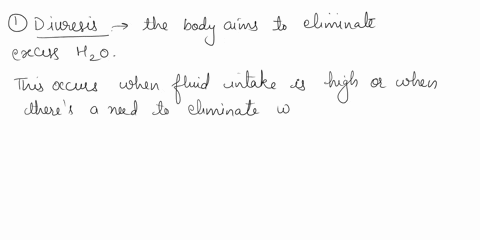 ① Diuresis → the body aims to eliminate
excess H₂O.
This occurs when fluid intake is high or when
there's a need to eliminate w